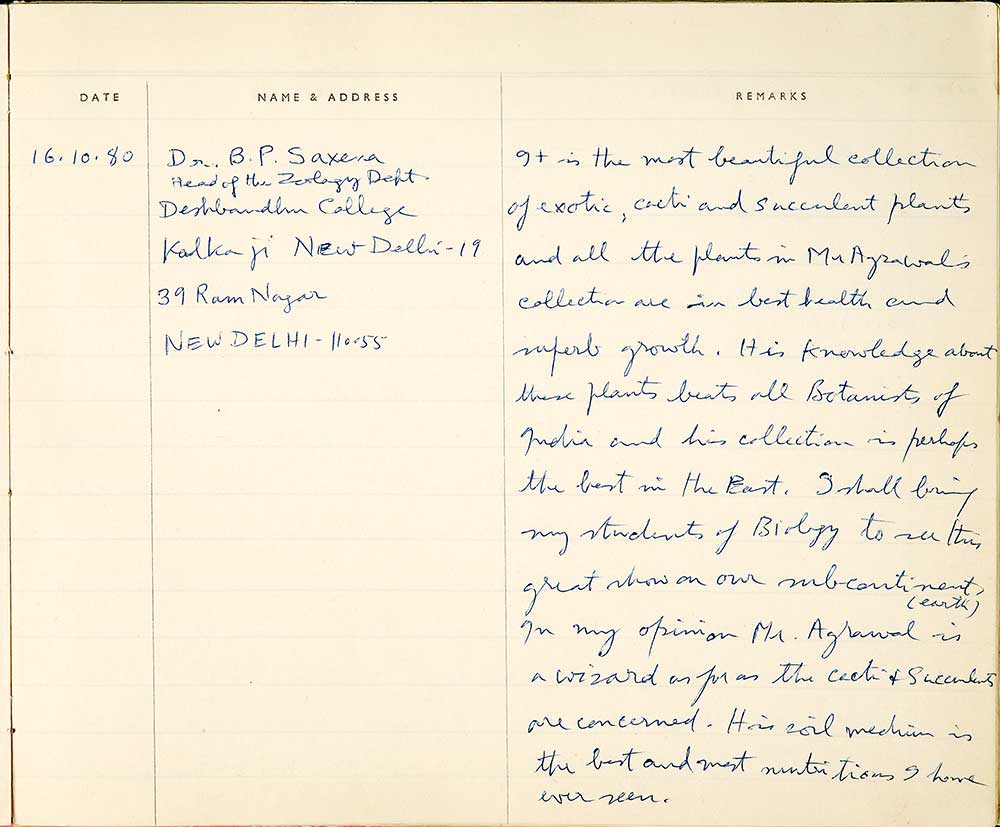 DATE
NAME & ADDRESS
REMARKS
16.10.80
Dr. B.P. Saxena
Head of the Zoology Dept
Deshbandhu College
Kalkaji New Delhi-19
39 Ram Nagar
NEW DELHI-110055
It is the most beautiful collection
of exotic, cacti and succulent plants
and all the plants in Mr Agrawal's
collection are in best health and
superb growth. His knowledge about
these plants beats all Botanists of
India and his collection is perhaps
the best in the East. I shall bring
my students of Biology to see this
great show on our subcontinent,
(earth)
In my opinion Mr. Agrawal is
a wizard as far as the cacti & Succulents
are concerned. His soil medium is
the best and most nutritious I have
ever seen.